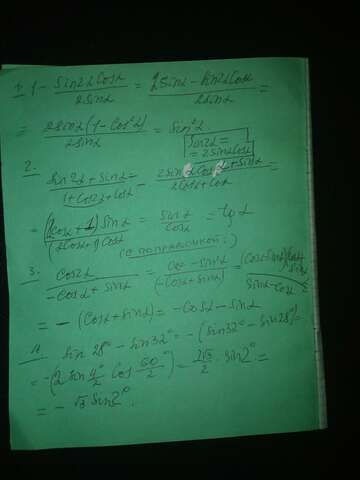 1. 1 - sin2α cosα / 2sinα = 2sinα - sin2α cosα / 2sinα =
= 2sinα(1 - cos²α) / 2sinα = sin²α
sin2α =
= 2sinα cosα
2.
sin2α + sinα / 1 + cos2α + cosα = 2sinα cosα + sinα / 2cos²α + cosα =
= (2cosα + 1) sinα / (2cosα + 1) cosα = sinα / cosα = tg α
(с поправочкой:)
3. cos2α / -cosα + sinα = cos² - sin²α / (-cosα + sinα) = (cosα - sinα)(cosα + sinα) / sinα - cosα
= - (cosα + sinα) = - cosα - sinα
4. sin 28° - sin 32° = - (sin 32° - sin 28°) =
= - (2 sin 4°/2 cos 60°/2) = 2√3/2 · sin 2° =
= - √3 sin 2°.